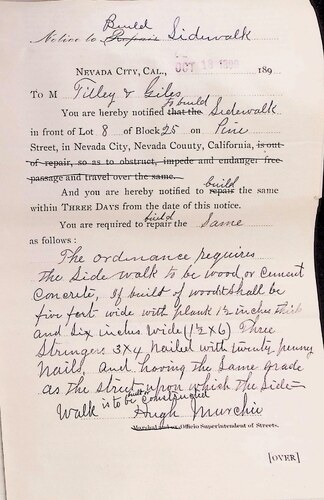 Build
Notice to Repair Sidewalk
NEVADA CITY, CAL., OCT 18 189
To M Tilley & Giles
to build
You are hereby notified that the Sidewalk
in front of Lot 8 of Block 25 on Pine
Street, in Nevada City, Nevada County, California, is out
of repair, so as to obstruct, impede and endanger free
passage and travel over the same.
build
And you are hereby notified to repair the same
within THREE DAYS from the date of this notice.
build
You are required to repair the Same
as follows:
The ordinance requires
the Side walk to be wood or Cement
Concrete, If built of wood shall be
five feet wide with plank 1½ inches thick
and Six inches wide (1½ x 6) Three
Stringers 3x4 nailed with twenty penny
Nails, and having the Same grade
as the street upon which the Side-
Walk is to be Constructed
Hugh Murchie
Marshal and ex Officio Superintendent of Streets.
[OVER]